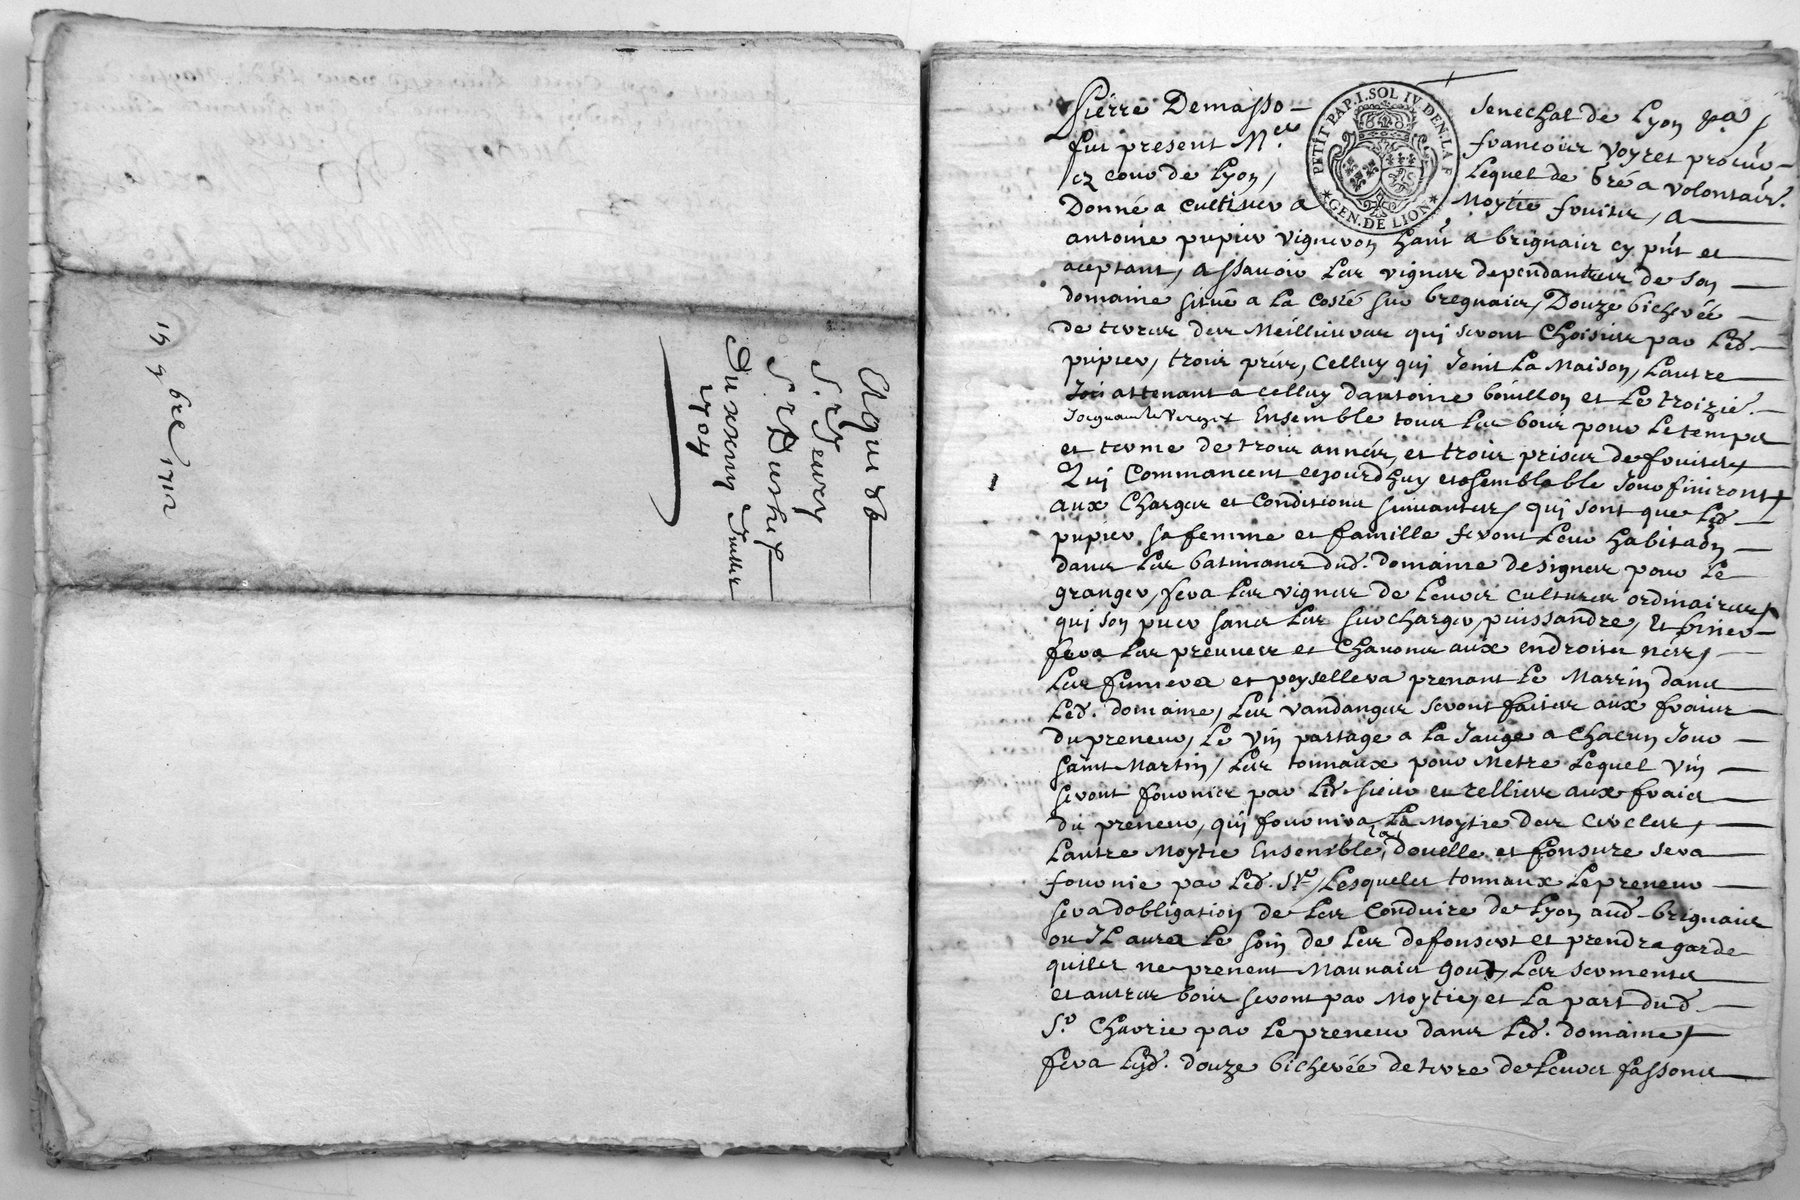 15 9bre 1712
Du xxmy Juillet
1704
Pierre Demasso
Senechal de Lyon
PETIT PAP. I. SOL IV. DEN. LA F
GEN. DE LION
fut present Me
francois voyret procur
ez cour de Lyon,
Lequel de gré a volontair.
Donné a cultiver a
Moytié fruits, a
antoine pupier vigneron hant a brignais cy pnt et
aceptant, assavoir Les vignes dependantes de son
domaine situé a la costé sur bregnais, Douze bicherée
de terres des Meillieures qui seront Choisies par Led.
pupier, trois prés, Celluy qui Joint La Maison, Lautre
attenant a celluy dantoine boüillon et Le troizié.
Joignant le verger Ensemble tous Les bois pour Le temps
et terme de trois années et trois prises de fruits
Qui Commancent cejourdhuy et semblable Jour finiront
aux Charges et Conditions suivantes, qui sont que Led
pupier, sa femme et famille feront Leur habitaon
dans Les batimans dud. domaine designes pour Le
granger, fera Les vignes de Leurs cultures ordinaires
qui son puer sans Les surcharger, puissandre, Et biner
fera Les preuves et Chanons aux endroits nesres
Les fumera et peyssellera prenant Le Marrin dans
Led. domaine, Les vandanges seront faites aux frais
du preneur, Le vin partagé a La Jauge a Chacun Jour
saint Martin, Les tonnaux pour Metre Lequel vin
seront fournis par Led. sieur et relliés aux frais
du preneur, qui fournira La Moytié des cercles,
Lautre Moytié Ensemble Les douelle et fonsure sera
fournie par Led. Sr, Lesquels tonnaux Le preneur
sera dobligation de Les Conduire de Lyon aud. brignais
ou JL aura Le soin de Les defonser et prendre garde
quiles ne prenent Mauvais gout, Les serments
et autres bois seront par Moytié, et La part dud.
Sr. Charrie par Le preneur dans Led. domaine,
fera Lesd. douze bicherée de terre de Leurs fassons